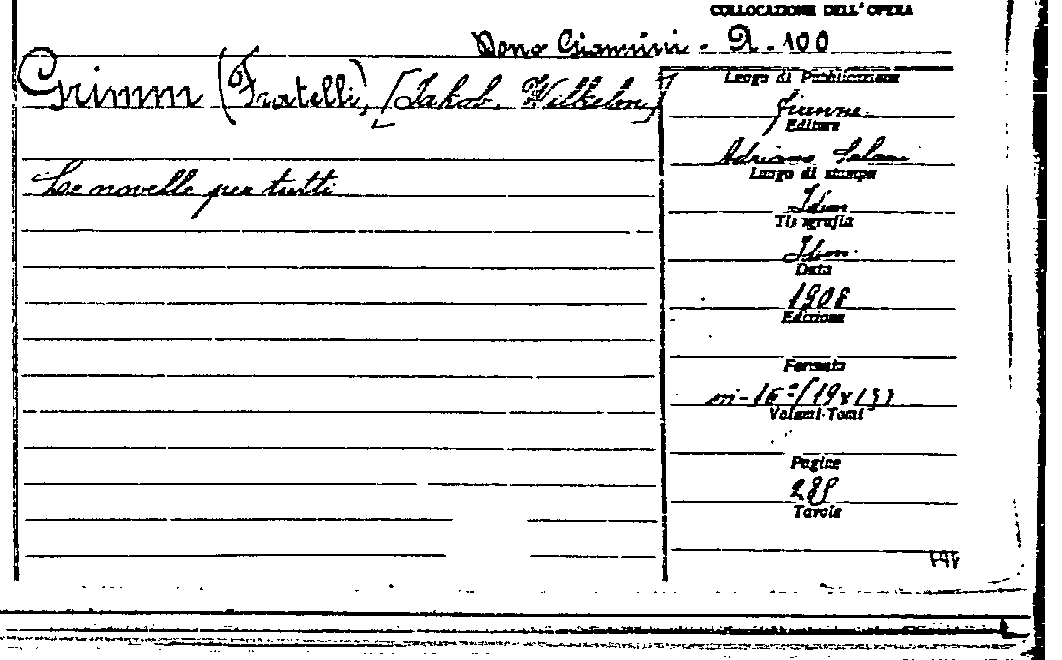 COLLOCAZIONE DELL'OPERA
Dono Giannini - A - 100
Grimm (Fratelli), [Jakob, Wilhelm]
Le novelle per tutti
Luogo di Pubblicazione
Firenze
Editore
Adriano Salani
Luogo di stampa
Idem
Tipografia
Idem
Data
1908
Edizione
Formato
in-16º (19x13)
Volumi-Tomi
Pagine
289
Tavole